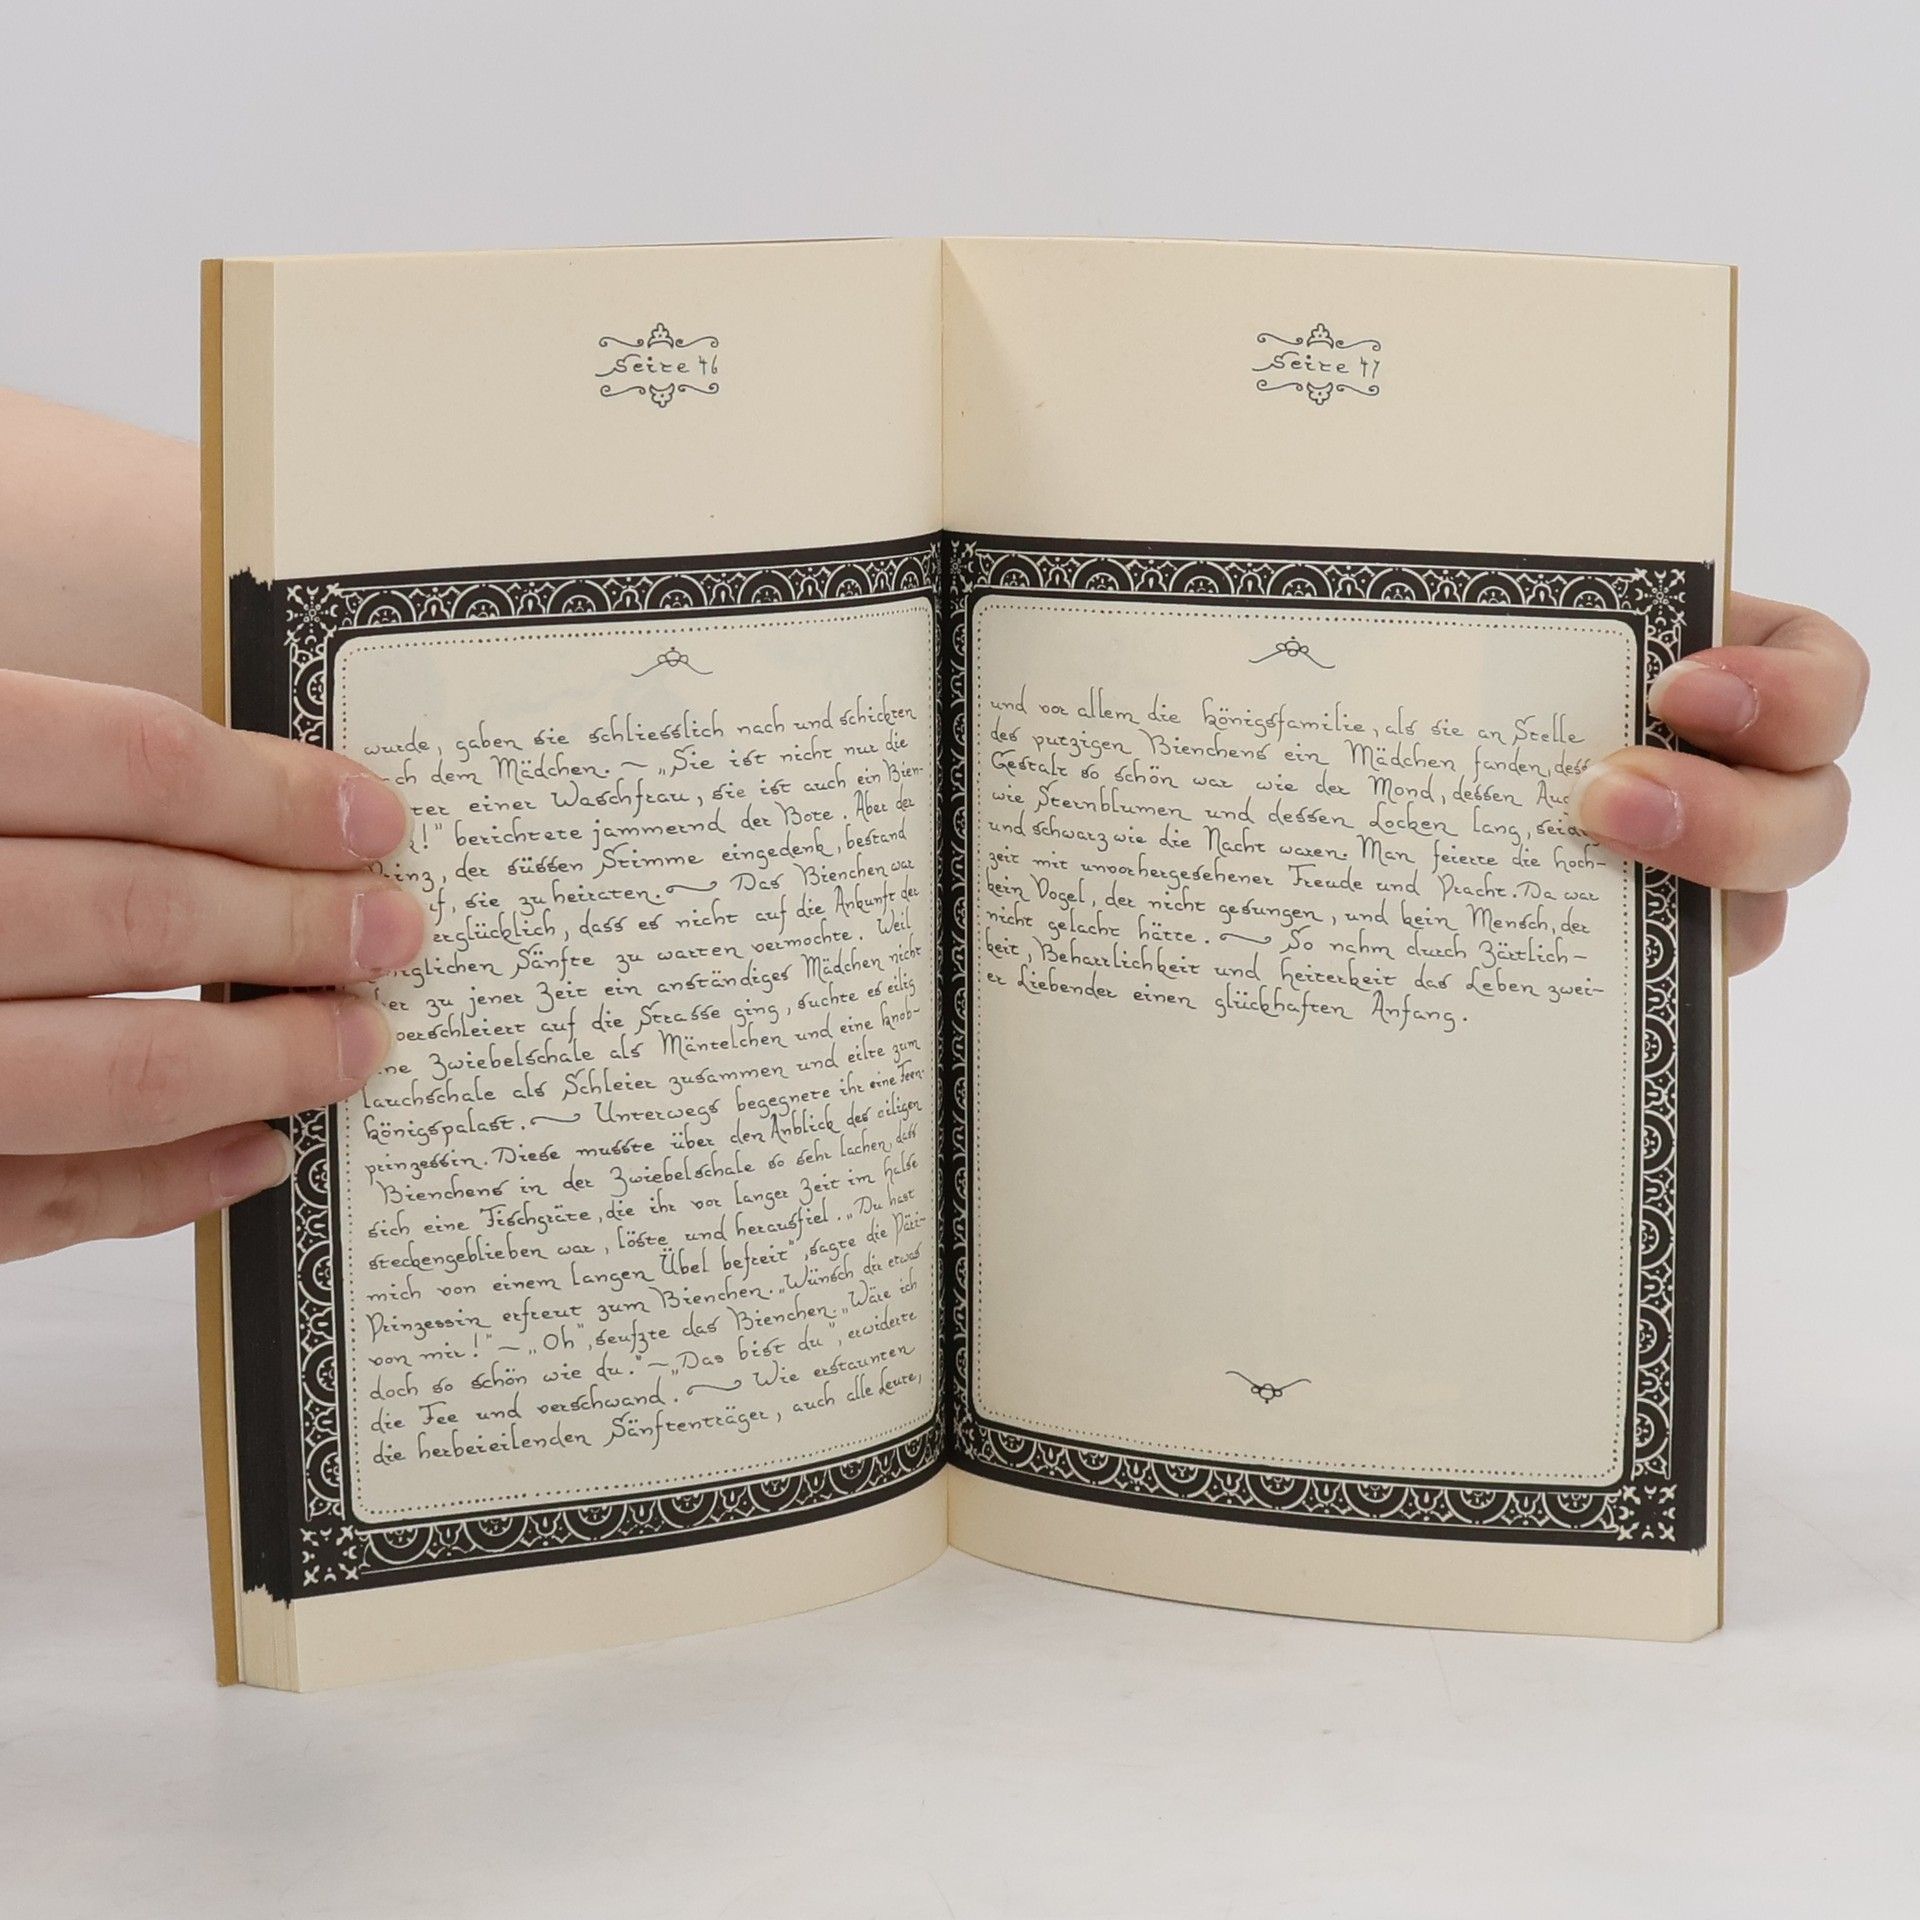 Seite 46
wurde, gaben sie schliesslich nach und schickten
dem Mädchen. ~ „Sie ist nicht nur die
einer Waschfrau, sie ist auch ein Bien-
!" berichtete jammernd der Bote. Aber der
Prinz, der süssen Stimme eingedenk, bestand
sie zu heiraten. ~ Das Bienchen war
dass es nicht auf die Ankunft der
Sänfte zu warten vermochte. Weil
zu jener Zeit ein anständiges Mädchen nicht
auf die Strasse ging, suchte es eilig
Zwiebelschale als Mäntelchen und eine Knob-
lauchschale als Schleier zusammen und eilte zum
Königspalast. ~ Unterwegs begegnete ihr eine Feen-
prinzessin. Diese musste über den Anblick des eiligen
Bienchens in der Zwiebelschale so sehr lachen, dass
sich eine Fischgräte, die ihr vor langer Zeit im Halse
steckengeblieben war, löste und herausfiel. „Du hast
mich von einem langen Übel befreit", sagte die Päri-
Prinzessin erfreut zum Bienchen. „Wünsch dir etwas
von mir!" ~ „Oh", seufzte das Bienchen. „Wäre ich
doch so schön wie du." ~ „Das bist du", erwiderte
die Fee und verschwand. ~ Wie erstaunten
die herbeieilenden Sänftenträger, auch alle Leute,
Seite 47
und vor allem die Königsfamilie, als sie an Stelle
des putzigen Bienchens ein Mädchen fanden,
Gestalt so schön war wie der Mond, dessen
wie Sternblumen und dessen Locken lang,
und schwarz wie die Nacht waren. Man feierte die Hoch-
zeit mit unvorhergesehener Freude und Pracht. Da war
kein Vogel, der nicht gesungen, und kein Mensch, der
nicht gelacht hätte. ~ So nahm durch Zärtlich-
keit, Beharrlichkeit und Heiterkeit das Leben zwei-
er Liebender einen glückhaften Anfang.